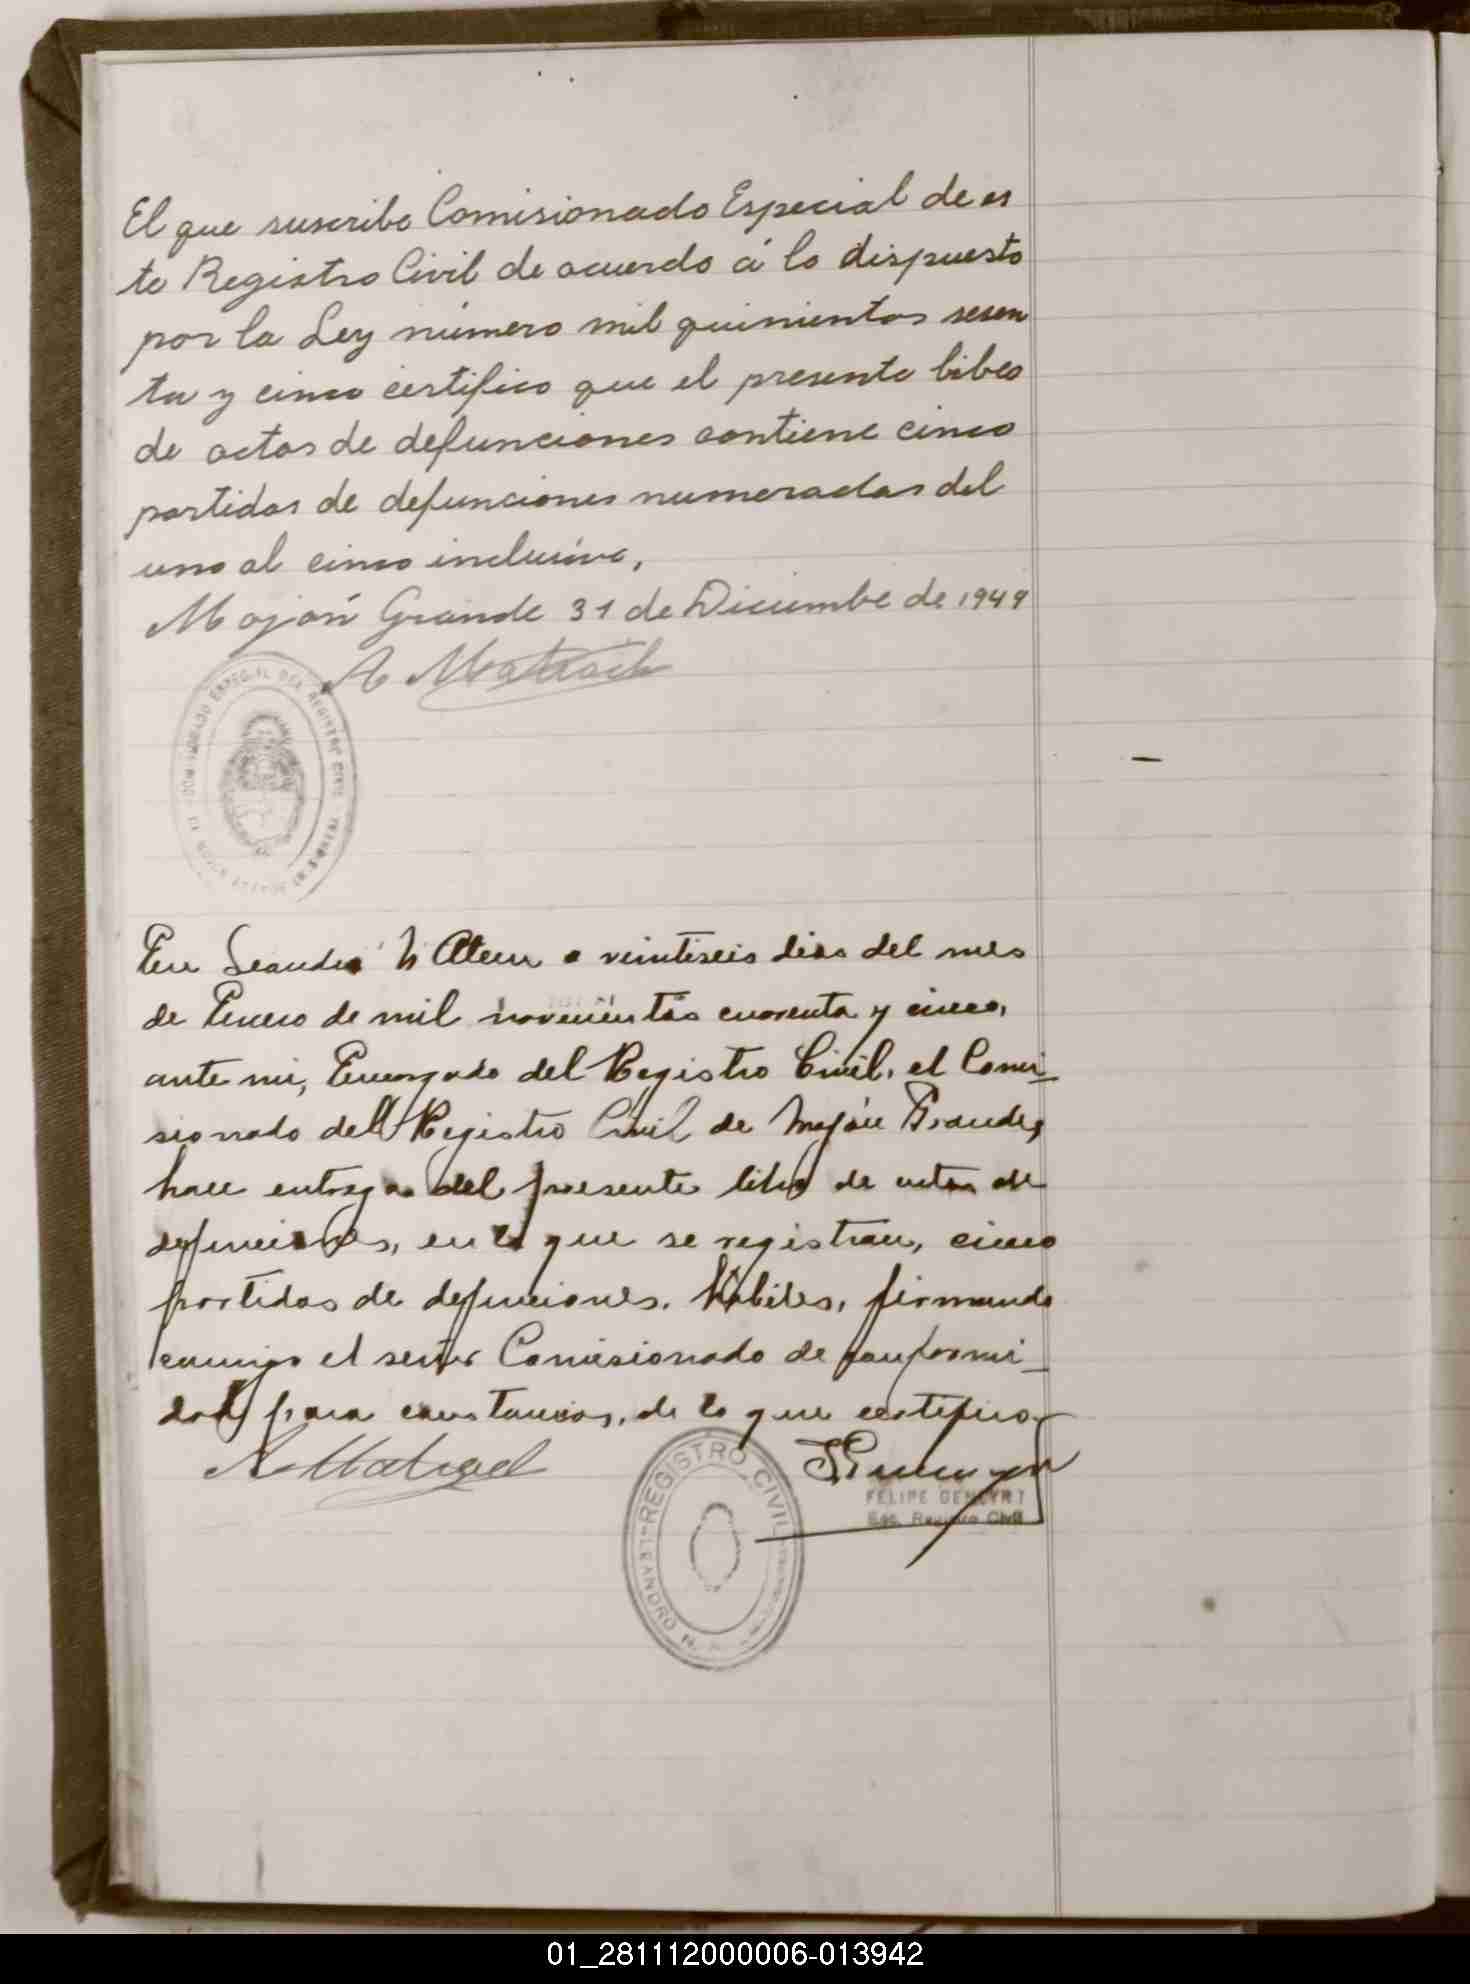 El que suscribe Comisionado Especial de es
te Registro Civil de acuerdo á lo dispuesto
por la Ley número mil quinientos sesen
ta y cinco certifico que el presente libro
de actas de defunciones contiene cinco
partidas de defunciones numeradas del
uno al cinco inclusive,
Mojón Grande 31 de Diciembre de 1944
A Matrach
COMISIONADO ESPECIAL DEL REGISTRO CIVIL
En Leandro N Alem a veintiseis dias del mes
de Enero de mil novecientos cuarenta y cinco,
ante mi, Encargado del Registro Civil, el Comi
sionado del Registro Civil de Mojón Grande,
hace entrega del presente libro de actas de
defunciones, en lo que se registran, cinco
partidas de defunciones. Hábiles, firmando
conmigo el señor Comisionado de conformi
dad para constancia, de lo que certifico.
REGISTRO CIVIL
LEANDRO N.
FELIPE GENEYRT
Enc. Registro Civil
01_281112000006-013942